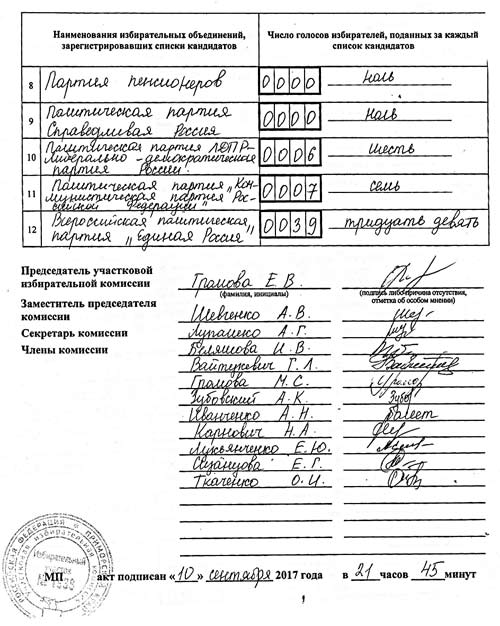 Наименования избирательных объединений,
зарегистрировавших списки кандидатов
Число голосов избирателей, поданных за каждый
список кандидатов
8 Партия пенсионеров 0 0 0 0 ноль
9 Политическая партия
Справедливая Россия 0 0 0 0 ноль
10 Политическая партия ЛДПР-
Либерально-демократическая
партия России 0 0 0 6 шесть
11 Политическая партия „Ком-
мунистическая партия Рос-
сийской Федерации" 0 0 0 7 семь
12 Всероссийская политическая
партия „Единая Россия" 0 0 3 9 тридцать девять
Председатель участковой
избирательной комиссии Громова Е. В.
(фамилия, инициалы) (подпись либо причина отсутствия,
отметка об особом мнении)
Заместитель председателя
комиссии Шевченко А. В.
Секретарь комиссии Лупашко А. Г.
Члены комиссии Беляшова И. В.
Вайткевич Г. Л.
Громова М. С.
Зубовский А. К.
Иванченко А. Н. болеет
Карнович Н. А.
Лукьянченко Е. Ю.
Сизанцова Е. Г.
Ткаченко О. И.
РОССИЙСКАЯ ФЕДЕРАЦИЯ
Избирательный
участок
МП акт подписан «10» сентября 2017 года в 21 часов 45 минут